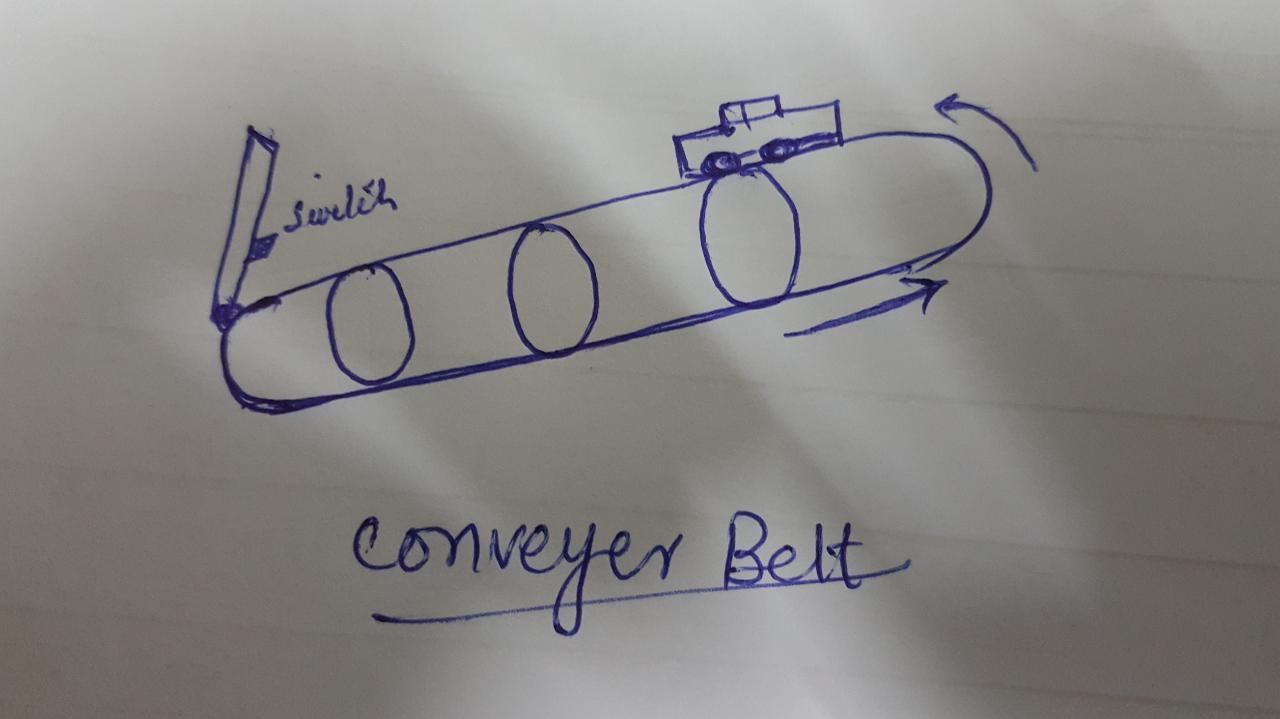 switch
conveyer Belt